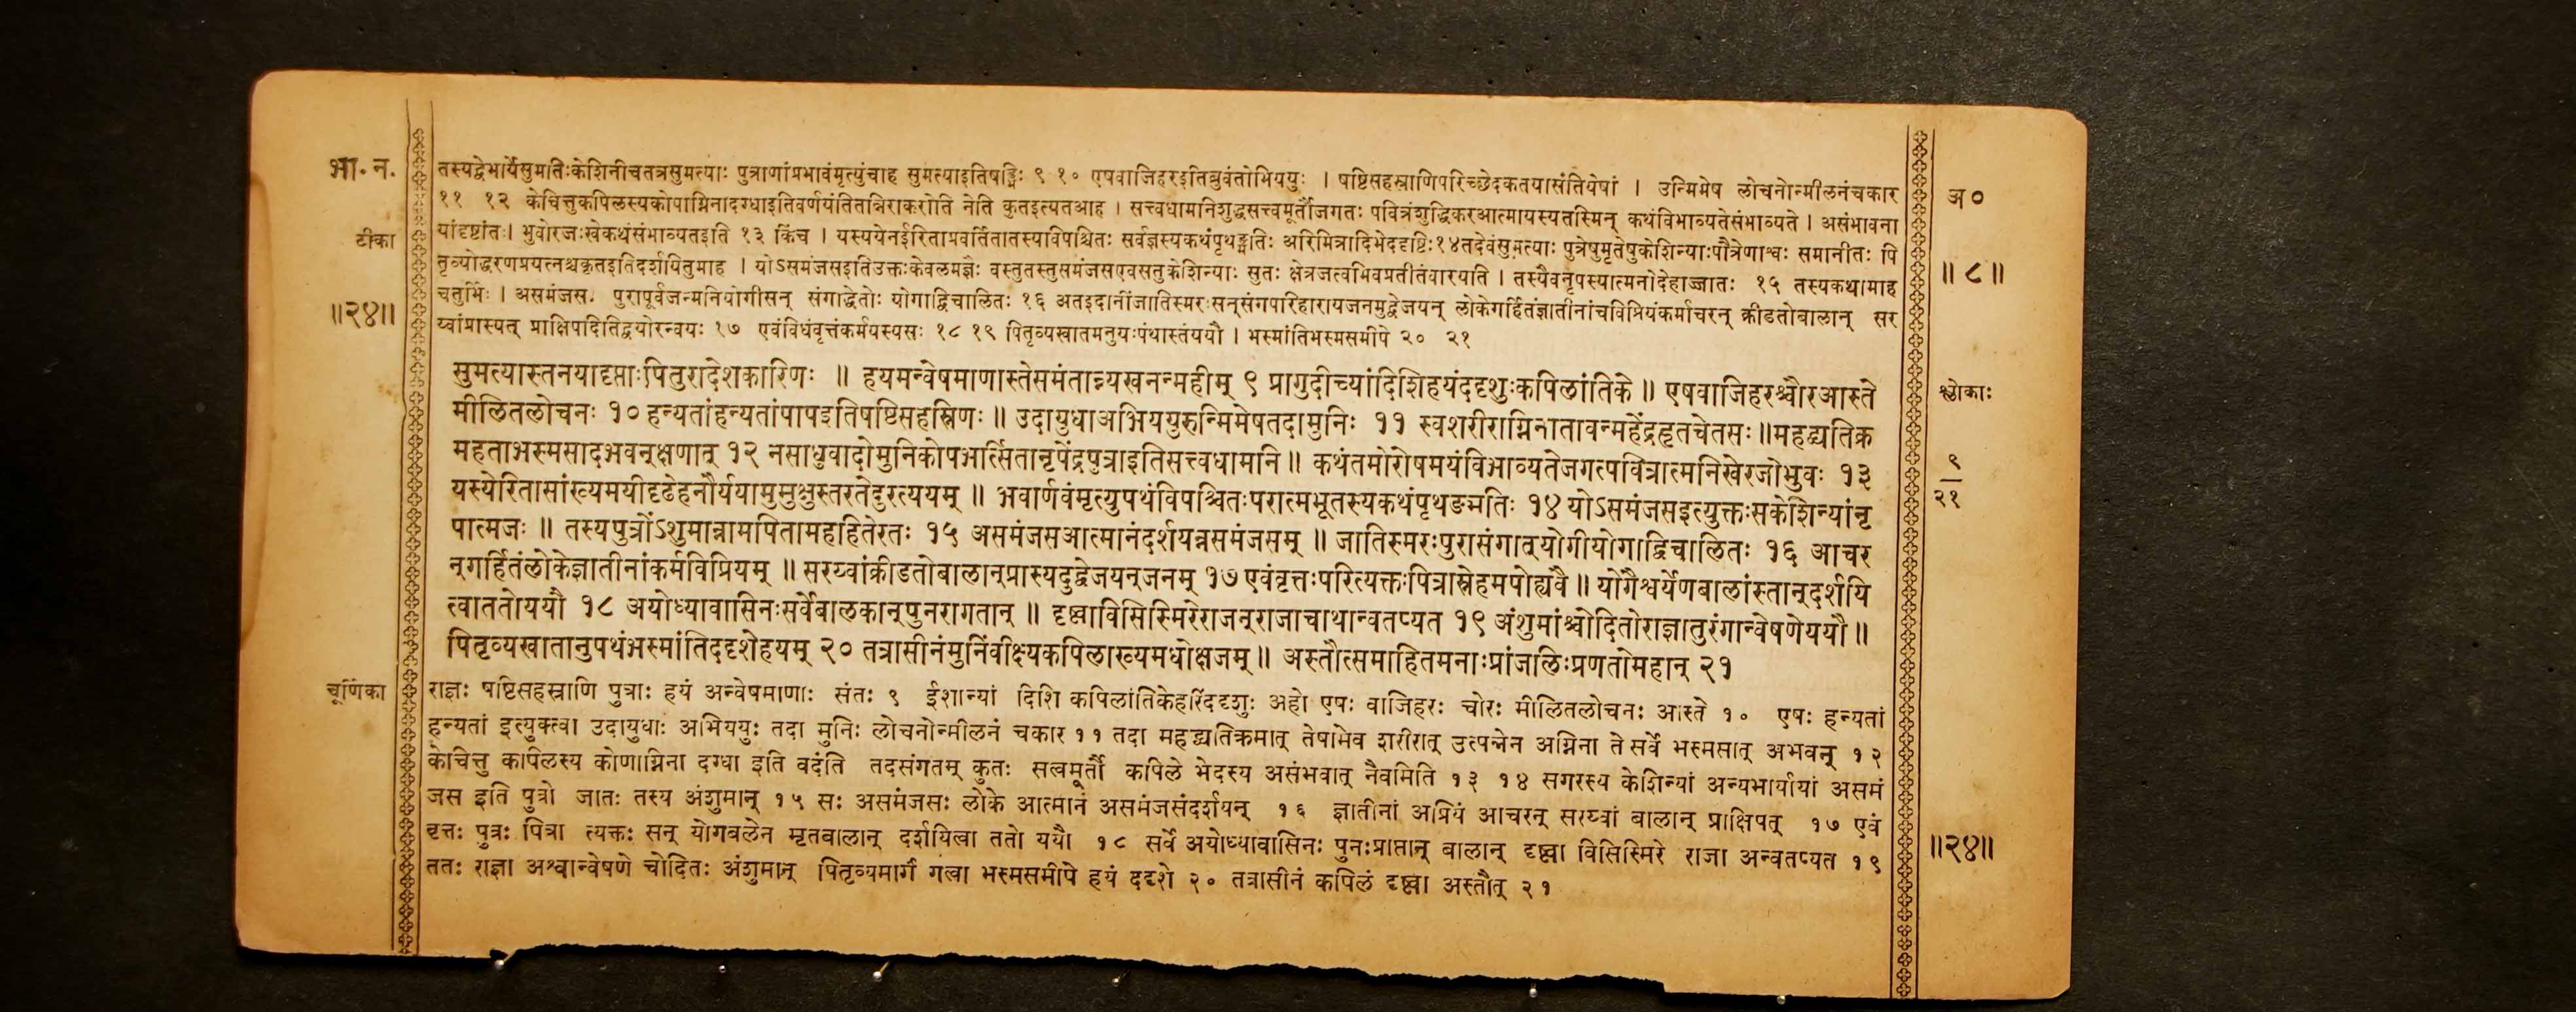 भा. न.
तस्यद्वेभार्येसुमतिःकेशिनीचतत्रसुमत्याः पुत्राणांप्रभावंमृत्युंचाह सुमत्याइतिषड्भिः ९ १० एषवाजिहरइतिब्रुवंतोभिययुः । षष्टिसहस्राणिपरिच्छेदकतयासंतियेषां । उन्मिमेष लोचनोन्मीलनंचकार
अ०
११ १२ केचित्तुकपिलस्यकोपाग्निनादग्धाइतिवर्णयंतितान्निराकरोति नेति कुतइत्यतआह । सत्त्वधामनिशुद्धसत्त्वमूर्तौजगतः पवित्रंशुद्धिकरआत्मायस्यतस्मिन् कथंविभाव्यतेसंभाव्यते । असंभावना
टीका
यांदृष्टांतः। भुवोरजःखेकथंसंभाव्यतइति १३ किंच । यस्ययेनईरिताप्रवर्तितातस्यविपश्चितः सर्वज्ञस्यकथंपृथङ्मतिः अरिमित्रादिभेददृष्टिः१४तदेवंसुमत्याः पुत्रेषुमृतेषुकेशिन्याःपौत्रेणाश्वः समानीतः पि
तृव्योद्धरणप्रयत्नश्चकृतइतिदर्शयितुमाह । योऽसमंजसइतिउक्तःकेवलमज्ञैः वस्तुतस्तुसमंजसएवसतुकेशिन्याः सुतः क्षेत्रजत्वभिवप्रतीतंवारयति । तस्यैवनृपस्यात्मनोदेहाज्जातः १५ तस्यकथामाह
॥८॥
॥२४॥
चतुर्भिः । असमंजस. पुरापूर्वजन्मनियोगीसन् संगाद्धेतोः योगाद्विचालितः १६ अतइदानींजातिस्मरःसन्संगपरिहारायजनमुद्वेजयन् लोकेगर्हितंज्ञातीनांचविप्रियंकर्माचरन् क्रीडतोबालान् सर
य्वांप्रास्यत् प्राक्षिपदितिद्वयोरन्वयः १७ एवंविधंवृत्तंकर्मयस्यसः १८ १९ पितृव्यखातमनुयःपंथास्तंययौ । भस्मांतिभस्मसमीपे २० २१
सुमत्यास्तनयादृप्ताःपितुरादेशकारिणः ॥ हयमन्वेषमाणास्तेसमंतान्न्यखनन्महीम् ९ प्रागुदीच्यांदिशिहयंददृशुःकपिलांतिके॥ एषवाजिहरश्चौरआस्ते
श्लोकाः
मीलितलोचनः १० हन्यतांहन्यतांपापइतिषष्टिसहस्रिणः॥ उदायुधाअभिययुरुन्मिमेषतदामुनिः ११ स्वशरीराग्निनातावन्महेंद्रहृतचेतसः॥महद्व्यतिक्र
महताभस्मसादभवन्क्षणात् १२ नसाधुवादोमुनिकोपभर्त्सितानृपेंद्रपुत्राइतिसत्त्वधामनि॥ कथंतमोरोषमयंविभाव्यतेजगत्पवित्रात्मनिखेरजोभुवः १३
९
२१
यस्येरितासांख्यमयीदृढेहनौर्ययामुमुक्षुस्तरतेदुरत्ययम् ॥ भवार्णवंमृत्युपथंविपश्चितःपरात्मभूतस्यकथंपृथङमतिः १४ योऽसमंजसइत्युक्तःसकेशिन्यांनृ
पात्मजः ॥ तस्यपुत्रोंऽशुमान्नामपितामहहितेरतः १५ असमंजसआत्मानंदर्शयन्नसमंजसम् ॥ जातिस्मरःपुरासंगात्योगीयोगाद्विचालितः १६ आचर
न्गर्हितंलोकेज्ञातीनांकर्मविप्रियम् ॥ सरय्वांक्रीडतोबालान्प्रास्यदुद्वेजयन्जनम् १७ एवंवृत्तःपरित्यक्तःपित्रास्नेहमपोह्यवै॥ योगैश्वर्येणबालांस्तान्दर्शयि
त्वाततोययौ १८ अयोध्यावासिनःसर्वेबालकान्पुनरागतान् ॥ दृष्ट्वाविसिस्मिरेराजन्राजाचाथान्वतप्यत १९ अंशुमांश्चोदितोराज्ञातुरंगान्वेषणेययौ॥
पितृव्यखातानुपथंभस्मांतिददृशेहयम् २० तत्रासीनंमुनिंवीक्ष्यकपिलाख्यमधोक्षजम्॥ अस्तौत्समाहितमनाःप्रांजलिःप्रणतोमहान् २१
चूर्णिका
राज्ञः षष्टिसहस्राणि पुत्राः हयं अन्वेषमाणाः संतः ९ ईशान्यां दिशि कपिलांतिकेहरिंददृशुः अहो एषः वाजिहरः चोरः मीलितलोचनः आस्ते १० एषः हन्यतां
हन्यतां इत्युक्त्वा उदायुधाः अभिययुः तदा मुनिः लोचनोन्मीलनं चकार ११ तदा महद्व्यतिक्रमात् तेषामेव शरीरात् उत्पन्नेन अग्निना ते सर्वे भस्मसात् अभवन् १२
केचित्तु कपिलस्य कोणाग्निना दग्धा इति वदंति तदसंगतम् कुतः सत्वमूर्तौ कपिले भेदस्य असंभवात् नैवमिति १३ १४ सगरस्य केशिन्यां अन्यभार्यायां असमं
जस इति पुत्रो जातः तस्य अंशुमान् १५ सः असमंजसः लोके आत्मानं असमंजसंदर्शयन् १६ ज्ञातीनां अप्रियं आचरन् सरय्वां बालान् प्राक्षिपत् १७ एवं
वृत्तः पुत्रः पित्रा त्यक्तः सन् योगबलेन मृतबालान् दर्शयित्वा ततो ययौ १८ सर्वे अयोध्यावासिनः पुनःप्राप्तान् बालान् दृष्ट्वा विसिस्मिरे राजा अन्वतप्यत १९
॥२४॥
ततः राज्ञा अश्वान्वेषणे चोदितः अंशुमान् पितृव्यमार्गं गत्वा भस्मसमीपे हयं ददृशे २० तत्रासीनं कपिलं दृष्ट्वा अस्तौत् २१